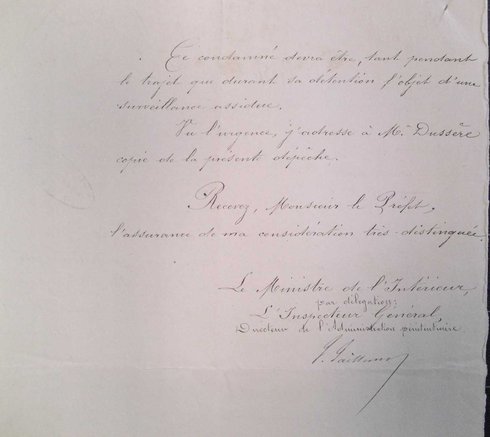 Ce condamné devra être, tant pendant
le trajet que durant sa détention l'objet d'une
surveillance assidue.
Vu l'urgence, j'adresse à M. Dussère
copie de la présente dépêche.
Recevez, Monsieur le Préfet,
l'assurance de ma considération très distinguée.
Le Ministre de l'Intérieur,
par délégation:
L'Inspecteur Général,
Directeur de l'Administration pénitentiaire